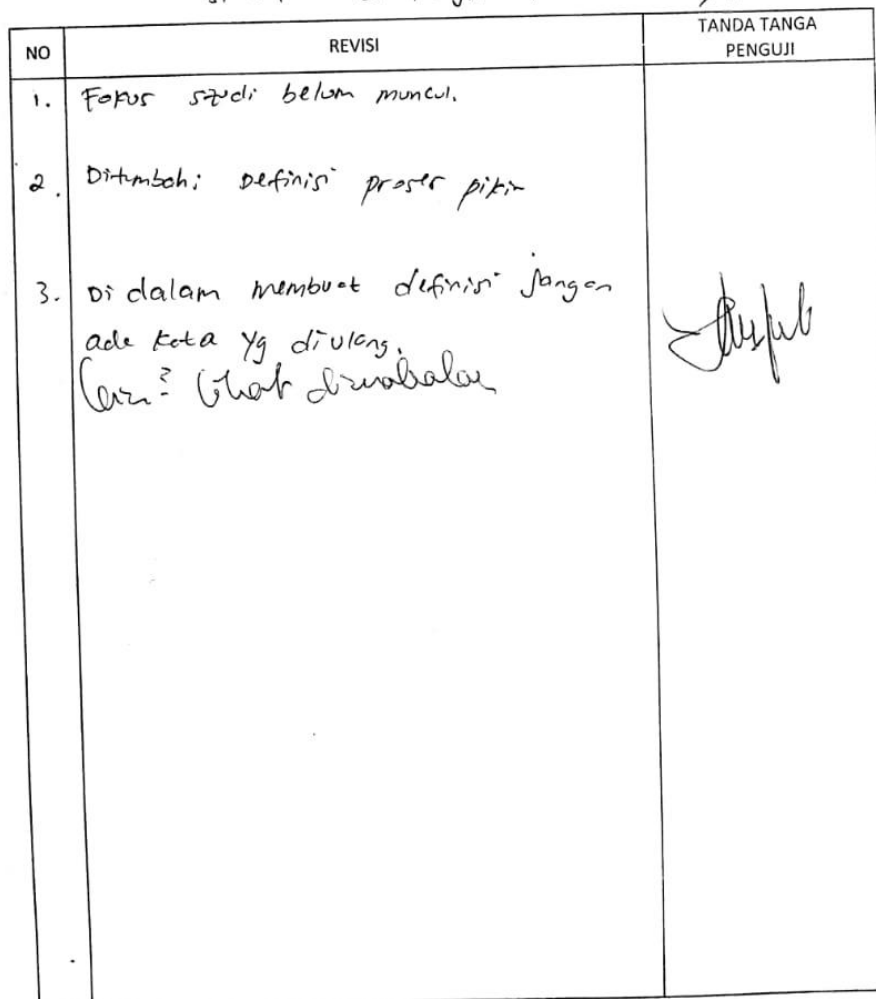 NO
REVISI
TANDA TANGA
PENGUJI
1. Fokus studi belum muncul.
2. Ditambahi Definisi proses pikir
3. Di dalam membuat definisi jangan
ada kata yg diulang.
lihat